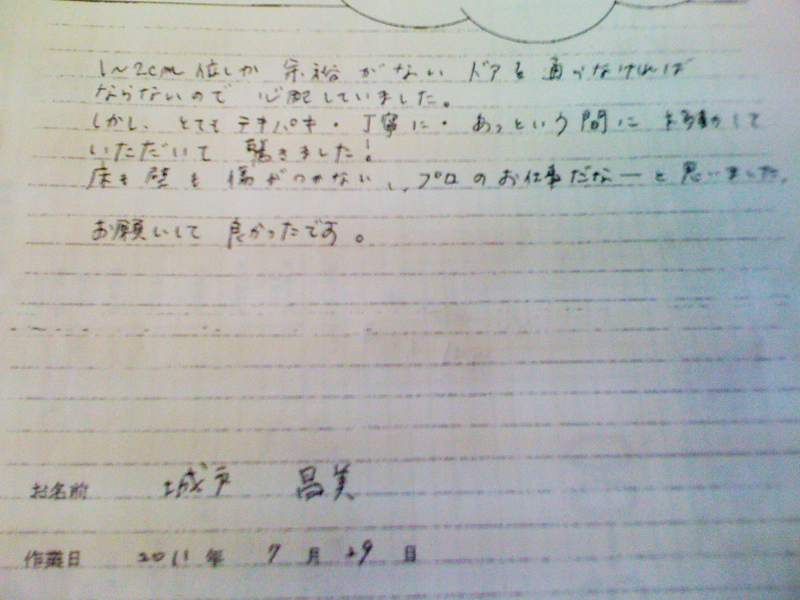 1〜2cm 位しか 余裕 が ない ドア を 通らなければ
ならないので 心配していました。
しかし、とても テキパキ・丁寧に・あっという間に 移動して
いただいて 驚きました!
床も 壁も 傷がつかない し、プロのお仕事だなーと 思いました。
お願いして 良かったです。
お名前 城戸 昌美
作業日 2011 年 7 月 29 日